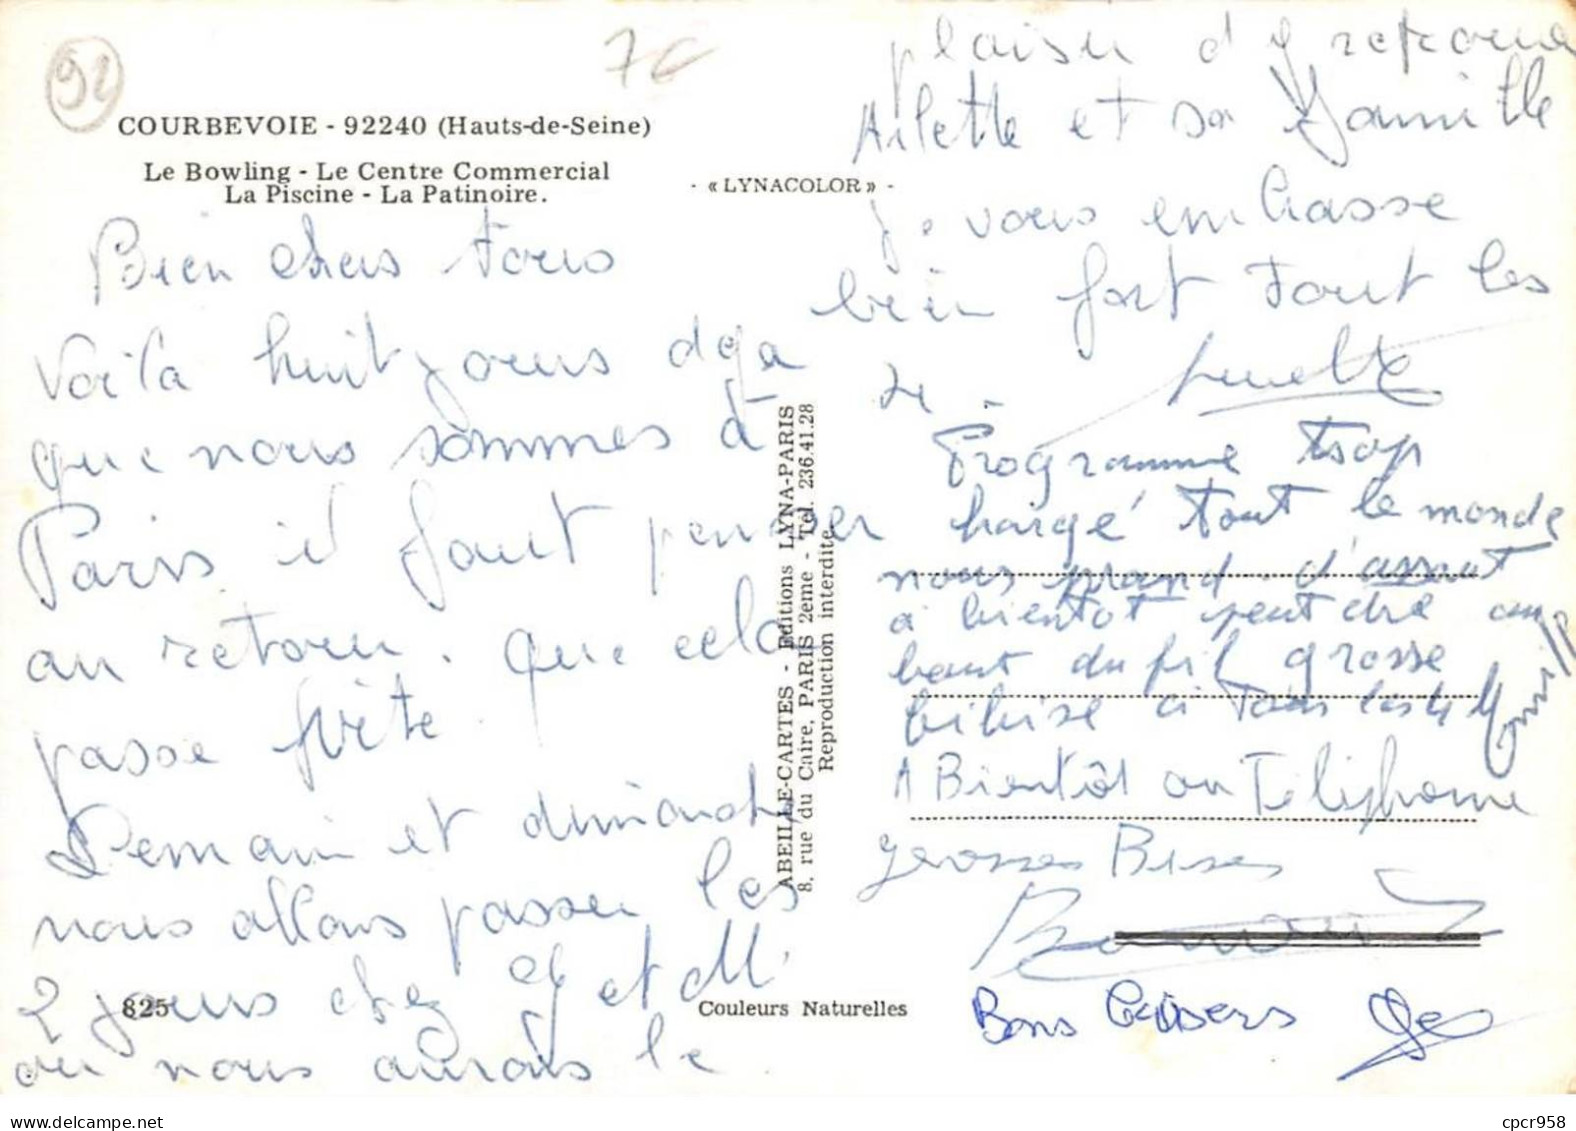 92
7€
COURBEVOIE - 92240 (Hauts-de-Seine)
Le Bowling - Le Centre Commercial
La Piscine - La Patinoire.
- « LYNACOLOR » -
Bien chers tous
Voilà huit jours deja
que nous sommes à
Paris il faut penser
au retour. que cela
passe vite.
Demain et dimanche
nous allons passer les
2 jours chez et M
ou nous aurons le
825
Couleurs Naturelles
ABEILLE-CARTES - Editions LYNA-PARIS
8, rue du Caire, PARIS 2eme - Tél. 236.41.28
Reproduction interdite.
plaisir d y retrouver
Arlette et sa famille
Je vous embrasse
bien fort tout les
Programme trop
chargé tout le monde
nous prend d'assaut
à bientot peut etre au
bout du fil grosse
à tous les
A Bientôt au Téléphone
grosses Bises
Bons Baisers
cpcr958